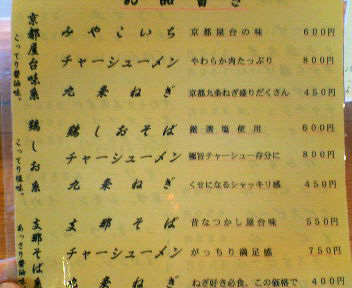 お品書き
京都屋台味系
こってり醤油味。
みやこいち 京都屋台の味 600円
チャーシューメン やわらか肉たっぷり 800円
九条ねぎ 京都九条ねぎ盛りだくさん 450円
鶏しお系
こってり塩味。
鶏しおそば 厳選塩使用 600円
チャーシューメン 極旨チャーシュー存分に 800円
九条ねぎ くせになるシャッキリ感 450円
支那そば系
あっさり醤油味
支那そば 昔なつかし屋台味 550円
チャーシューメン がっちり満足感 750円
九条ねぎ ねぎ好き必食、この価格で 400円